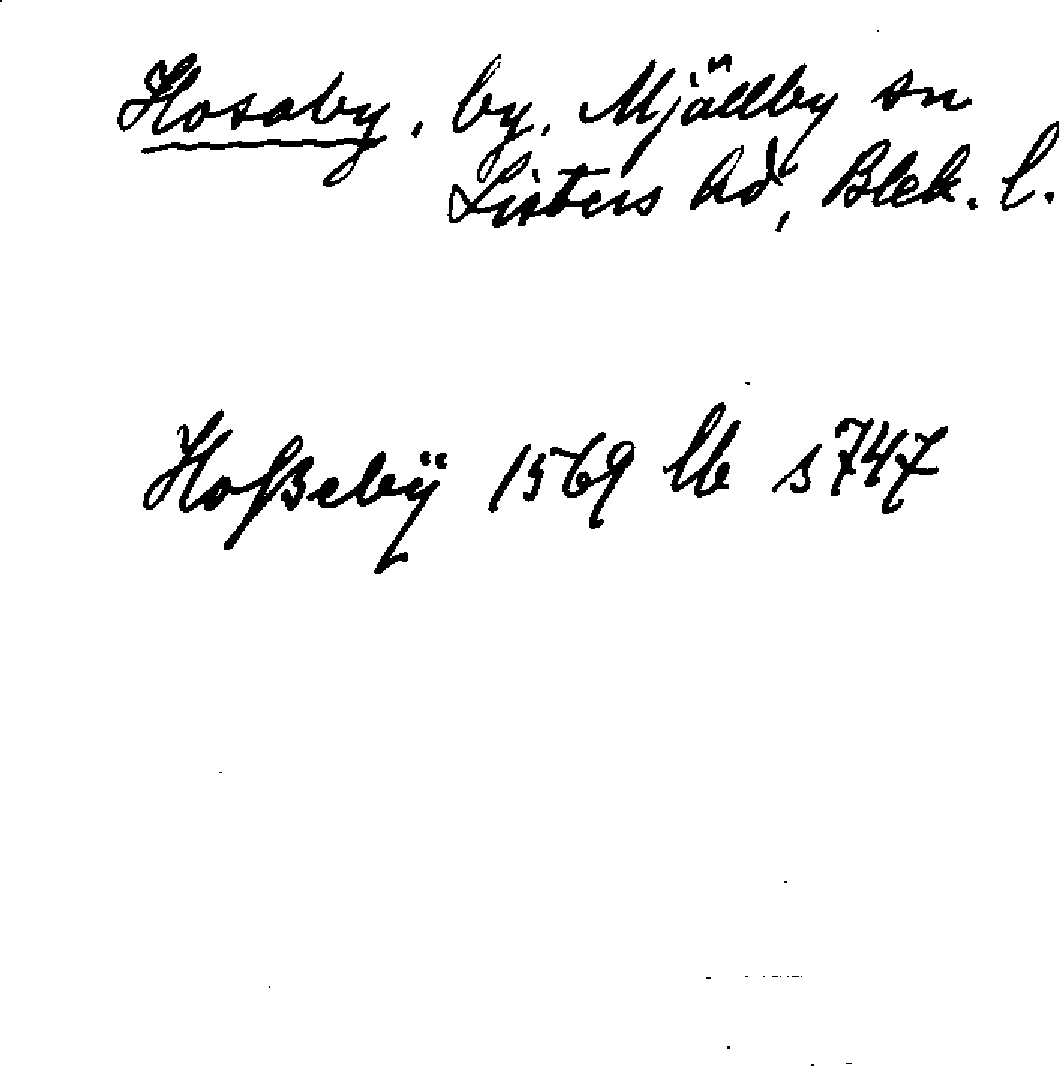 Hosaby, by, Mjällby sn
Listers hd, Blek. l.
Hoßebÿ 1569 lb s 747